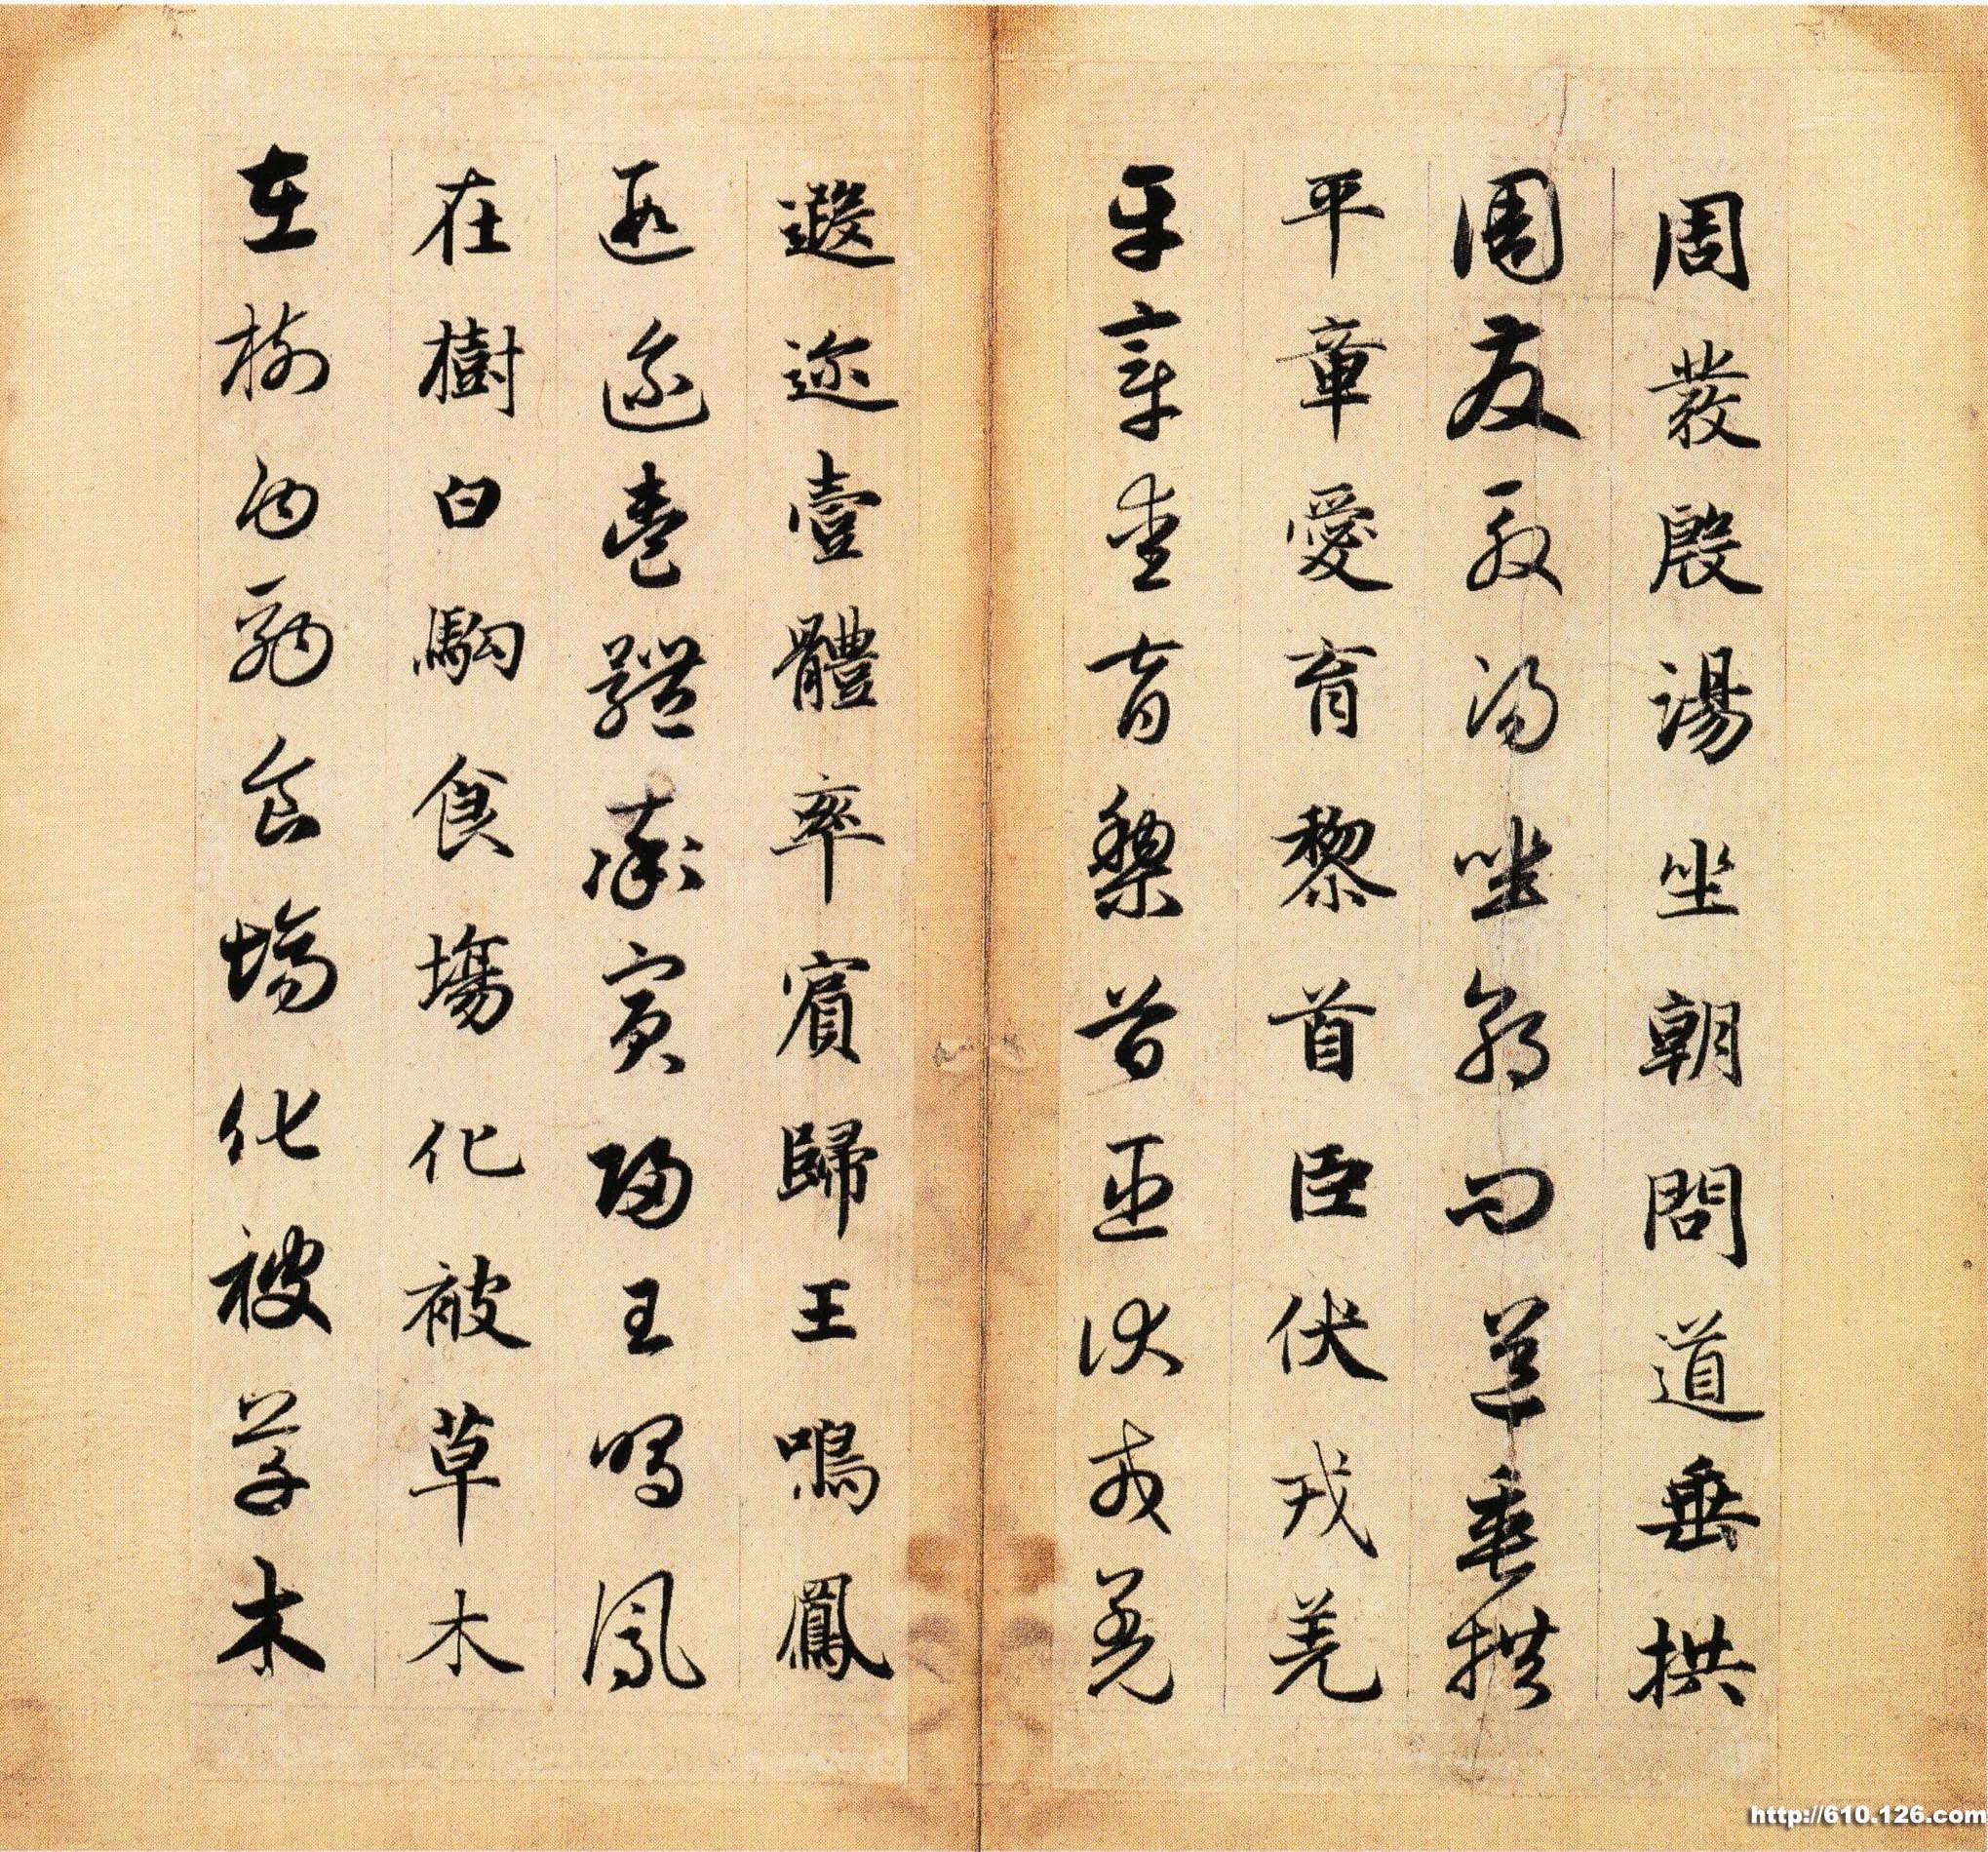 周發殷湯坐朝問道垂拱
周發殷湯坐朝問道垂拱
平章愛育黎首臣伏戎羌
平章愛育黎首臣伏戎羌
遐迩壹體率賓歸王鳴鳳
遐迩壹體率賓歸王鳴鳳
在樹白駒食場化被草木
在樹白駒食場化被草木
http://610.126.com